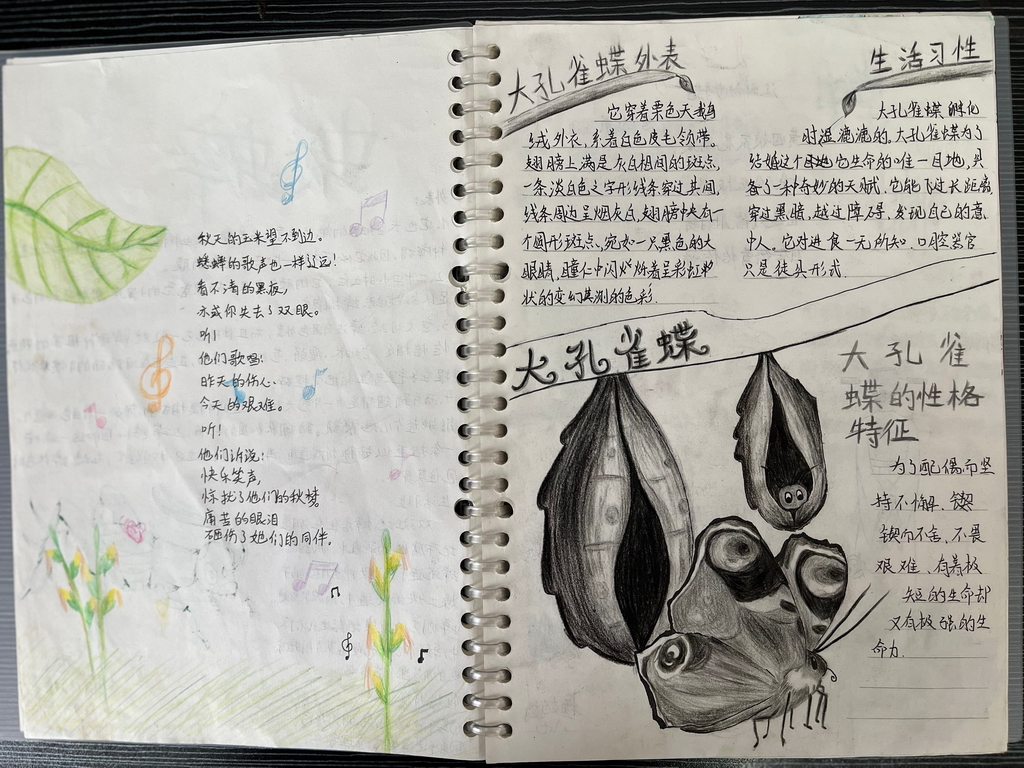 秋天的玉米望不到边。
蟋蟀的歌声也一样辽远！
看不清的黑夜，
亦或你失去了双眼。
听！
他们歌唱：
昨天的伤心、
今天的艰难。
听！
他们诉说：
快乐笑声，
惊扰了他们的秋梦。
痛苦的眼泪
砸伤了她们的同伴。
大孔雀蝶外表
它穿着栗色天鹅
绒外衣，系着白色皮毛领带。
翅膀上满是灰白相间的斑点，
一条淡白色之字形线条穿过其间，
线条周边呈烟灰白，翅膀中央有一
个圆形斑点，宛如一只黑色的大
眼睛，瞳仁中闪烁着呈彩虹
状的变幻莫测的色彩.
生活习性
大孔雀蝶孵化
时湿漉漉的。大孔雀蝶为了
结婚这个目地它生命的唯一目地，具
备了一种奇妙的天赋，它能飞过长距离
穿过黑暗，越过障碍，发现自己的意
中人，它对进食一无所知，口腔器官
只是徒具形式.
大孔雀蝶
大孔雀
蝶的性格
特征
为了配偶而坚
持不懈、锲
锲而不舍，不畏
艰难、有着极
短的生命却
又有极强的生
命力.